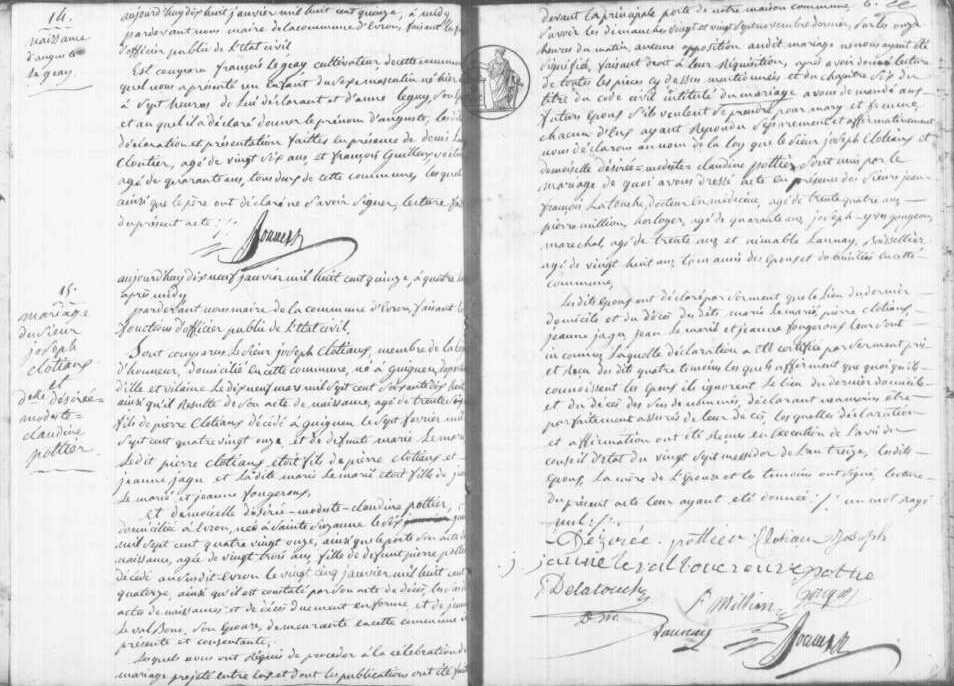 14.
naissance
d'auguste
le geay
aujourd'huy dix huit janvier mil huit cent quinze, à midy
pardevant nous maire de la commune d'Evron, faisant les
d'officier public de l'Etat civil
Est comparu françois le geay cultivateur de cette commune
quel nous a présenté un enfant du sexe masculin né hier
à sept heures de lui déclarant et d'anne leguy, son
et auquel il a déclaré donner le prénom d'auguste, les
déclaration et présentation faittes en présence de denis
Cloutier, agé de vingt six ans, et françois Guilleux
agé de quarante ans, tous deux de cette commune, les quels
ainsi que le père ont déclaré ne savoir signer, lecture
du présent acte ;/.
15.
mariage
du sieur
joseph
clotiaux
et
delle désirée=
modeste=
claudine
pottier.
aujourd'huy dix neuf janvier mil huit cent quinze, à quatre
après midy
pardevant nous maire de la commune d'Evron, faisant les
fonctions d'officier public de l'Etat civil,
Sont comparus le sieur joseph Clotiaux, membre de la
d'honneur, domicilié en cette commune, né à Guignen,
d'ille et vilaine le dix neuf mars mil sept cent soixante dix huit
ainsi qu'il résulte de son acte de naissance, agé de trente six
fils de pierre Clotiaux décédé à guignen le sept février mil
sept cent quatre vingt onze, et de defunte marie Le marié
Ledit pierre clotiaux etoit fils de pierre clotiaux et
jeanne jagu et ladite marie Le marié etoit fille de
Le marié et jeanne fougeroux,
et demoiselle désirée=modeste=claudine pottier,
domiciliée à Evron, née à Sainte Suzanne le dix
mil sept cent quatre vingt onze, ainsi que le porte son acte de
naissance, agée de vingt trois ans, fille de defunt pierre pottier
décédé audit Evron le vingt cinq janvier mil huit cent
quatorze, ainsi qu'il est constaté par son acte de décès, les
actes de naissances et de décès duement en forme, et de jeanne
Le val Bons, son Epouse, demeurante en cette commune
présente et consentante,
Lesquels nous ont requis de procéder à la célébration du
mariage projeté entre eux et dont les publications ont été faites
devant la principale porte de notre maison commune,
savoir les dimanches vingt et vingt sept novembre dernier, sur les onze
heures du matin, aucune opposition audit mariage ne nous ayant été
signifiée, faisant droit à leur réquisition, après avoir donné lecture
de toutes les pièces cy dessus mentionnées et du chapitre six du
titre du code civil intitulé du mariage avons demandé aux
futurs époux s'ils veulent se prendre pour mary et femme,
chacun d'eux ayant repondu séparément et affirmativement
nous déclarons au nom de la loy que le sieur joseph Clotiaux et
demoiselle désirée=modeste claudine pottier, sont unis par le
mariage de quoi avons dressé acte en présence des sieurs jean
françois Latouche, docteur en médecine, agé de trente quatre ans
pierre million, horloger, agé de quarante ans, joseph=yves gougeon,
marechal, agé de trente ans et aimable Launay,
agé de vingt huit ans tous amis des Epoux et domiciliés en cette
commune,
Lesdits époux ont déclaré par serment que le lieu du dernier
domicile et du décès des dits marie Le marié, pierre clotiaux,
jeanne jagu, jean Le marié et jeanne fougeroux leur sont
inconnus, laquelle déclaration a été certifiée par serment
et reçu des dits quatre temoins les quels affirment que quoiqu'ils
connoissent les époux ils ignorent le lieu du dernier domicile
et du décès des sus dénommés, déclarant neanmoins être
parfaitement assurés de leur décès, les quelles déclarations
et affirmation ont été reçues en execution de l'avis du
conseil d'Etat du vingt sept messidor de l'an treize, lesdits
époux, la mère de l'épouse et les témoins ont signé, lecture
du présent acte leur ayant été donnée ;/. un mot rayé
nul ;/.
Désirée. pottier Clotiaux Joseph
Delatouche
D. m.
P. Million
Launay